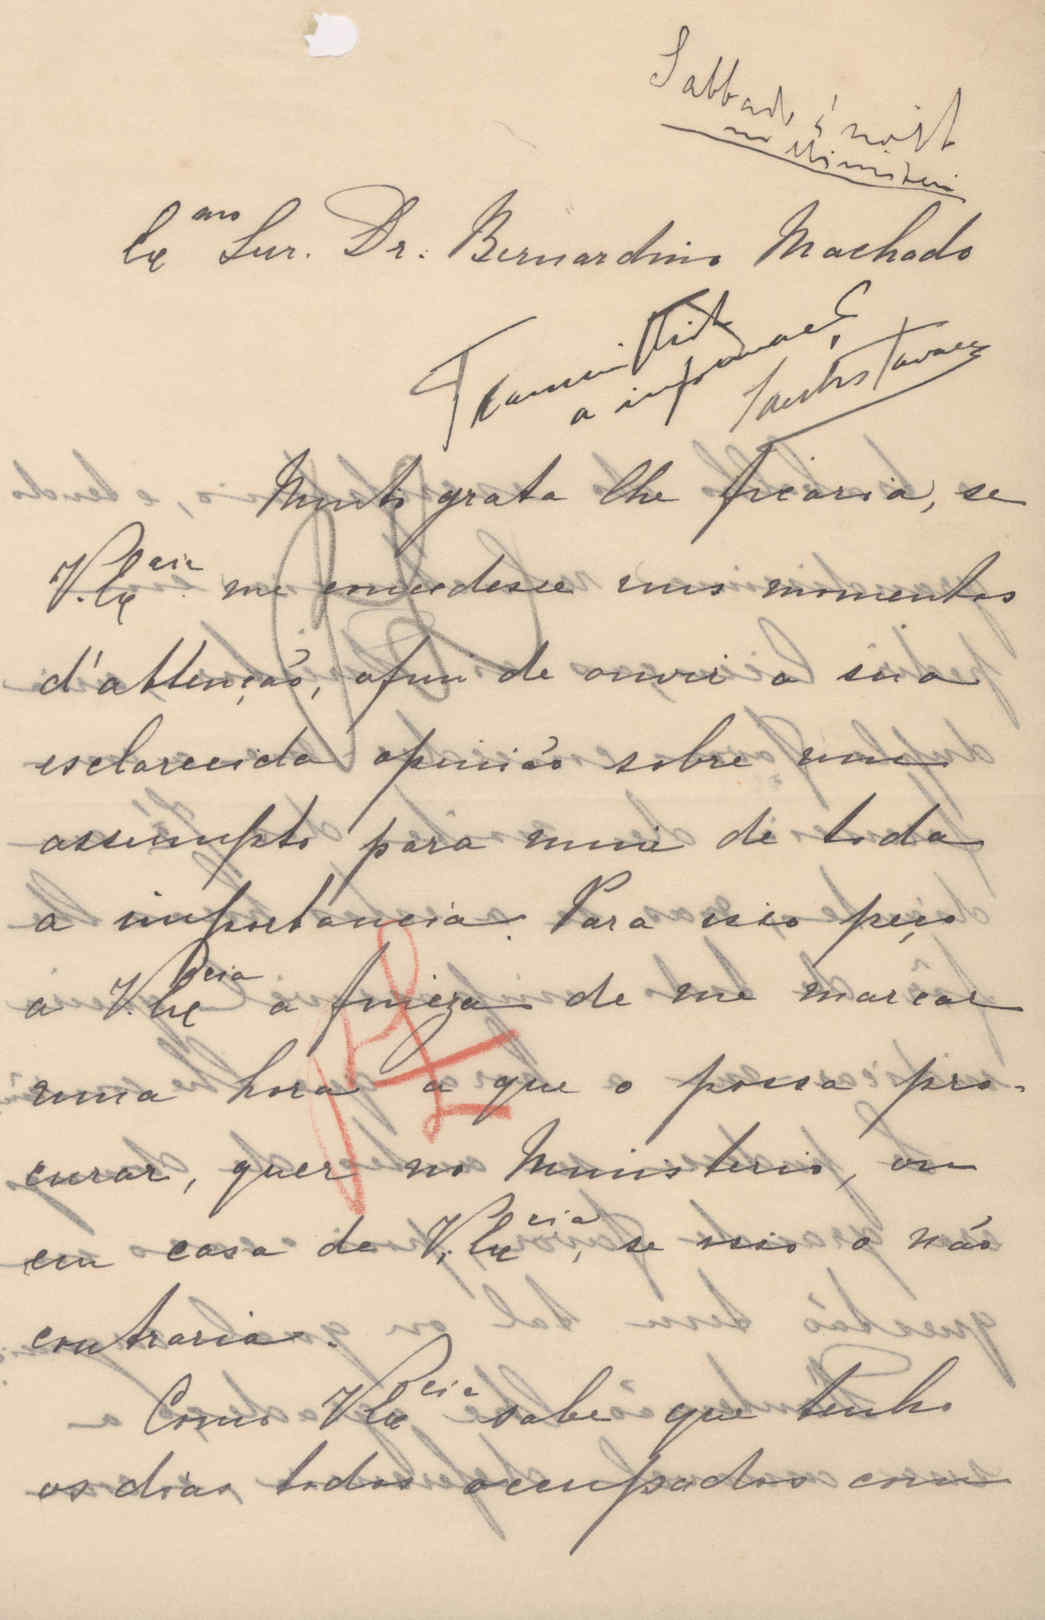 Sabbado á noite
no Ministerio
Exmo Snr. Dr. Bernardino Machado
a informação
Santos Tavares
Muito grata lhe ficaria, se
V. Excia me concedesse uns momentos
d'attenção, afim de ouvir a sua
esclarecida opinião sobre um
assumpto para mim de toda
a importancia. Para isso peço
a V. Excia a fineza de me marcar
uma hora a que o possa pro-
curar, quer no Ministerio, ou
em casa de V. Excia, se isso o não
contraria.
Como V. Excia sabe que tenho
os dias todos occupados com